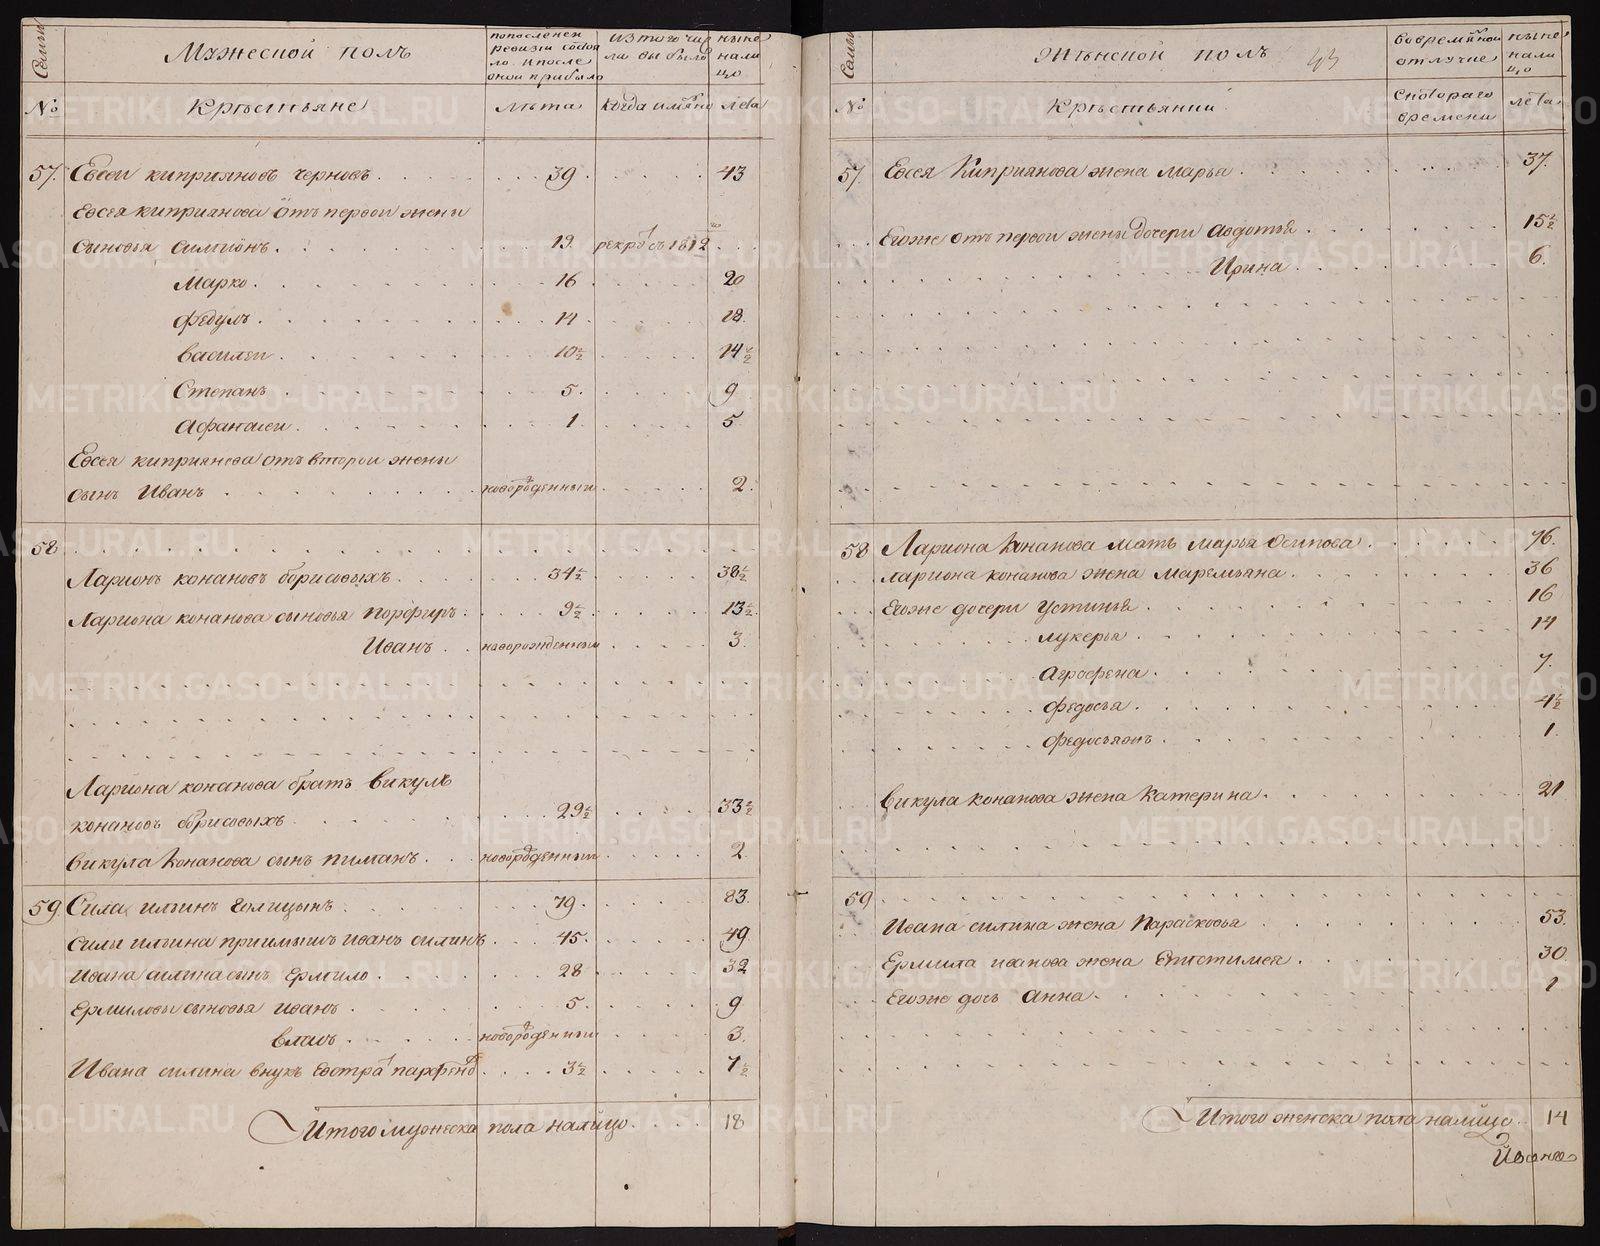 Семьи
Мужеской полъ
по последней ревизїи состояло и после оной прибыло
из того числа выбыло
ныне на лицо
№
Крѣстьяне
лѣта
когда имянно
лета
57. Евсеи киприяновъ черновъ 39. 43
Евсея киприанова отъ первои жены
сыновья симионъ 19. рекрутъ 1812го
Марко 16 20
Федулъ 14 18.
василеи 10½ 14½
Степанъ 5. 9
Афанасеи 1 5
Евсея киприянова отъ второи жены
сынъ Иванъ новорожденныи 2.
58
Ларионъ конановъ борисовыхъ 34½ 38½
Лариона конанова сыновья порфиръ 9½ 13½
Иванъ новорожденныи 3.
Лариона конанова братъ викулъ
конановъ борисовыхъ 29½ 33½
викула Конанова сынъ пиманъ новорожденныи 2
59 Сила ильинъ голицынъ 79. 83.
Силы ильина приимышъ иванъ силинъ 45. 49
Ивана силина сынъ Ермило 28 32
Ермиловы сыновья иванъ 5. 9
власъ новорожденныи 3.
Ивана силина внукъ Евстратъ парфеновъ 3½ 7½
Итого мужеска пола налицо 18
Семьи
Женской полъ
43
во временной отлучке
ныне на лицо
№
Крѣстьянки
с котораго времени
лета
57 Евсея Киприянова жена марья 37.
Егоже отъ первои жены дочери авдотья 15½
Ирина 6.
58 Лариона Конанова мать марья осипова 76.
лариона конанова жена Маремьяна 36
Егоже дочери Устинья 16
лукерья 14
Агрофена 7.
Федосья 4½
1.
викула конанова жена Катерина 21
59
Ивана силина жена Парасковья 53.
Ермила иванова жена Епистимея 30
Егоже дочь Анна 1
Итого женска пола налицо 14
Иванъ
METRIKI.GASO-URAL.RU